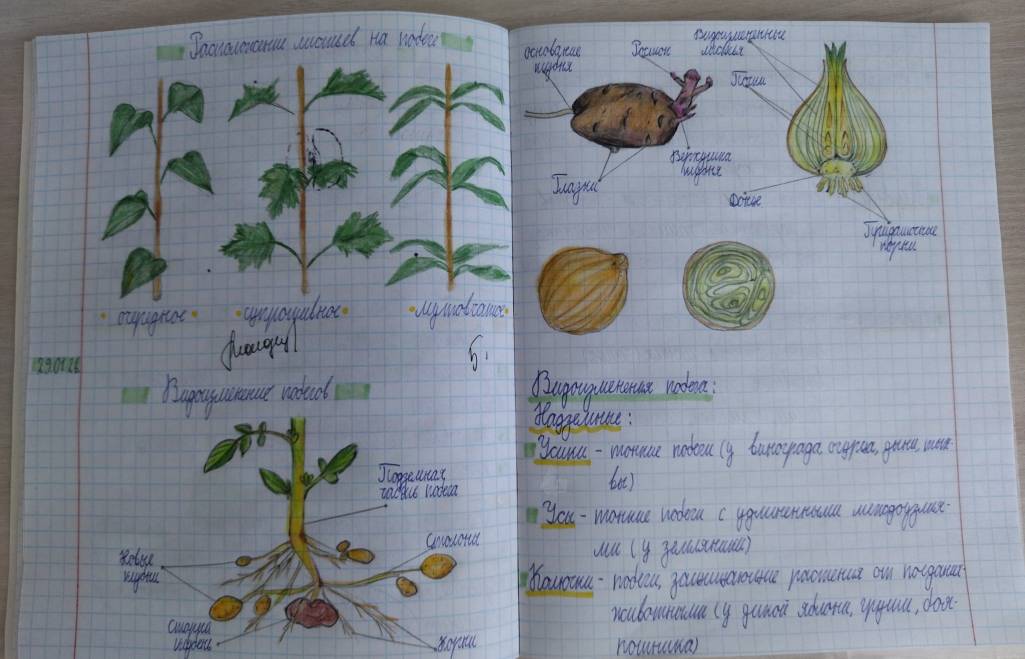 Расположение листьев на побеге
очередное
супротивное
мутовчатое
5.
29.01.26
Видоизменение побегов
Подземная
часть побега
Столоны
Новые
клубни
Старый
клубень
Корни
Основание
клубня
Росток
Видоизмененные
листья
Почки
Верхушка
клубня
Глазки
Донце
Придаточные
корни
Видоизменения побега:
Надземные:
Усики - тонкие побеги (у винограда огурца, дыни, тык-
вы)
Усы - тонкие побеги с удлиненными междоузлия-
ми (у земляники)
Колючки - побеги, защищающие растения от поедания
животными (у дикой яблони, груши, боя-
рошника)